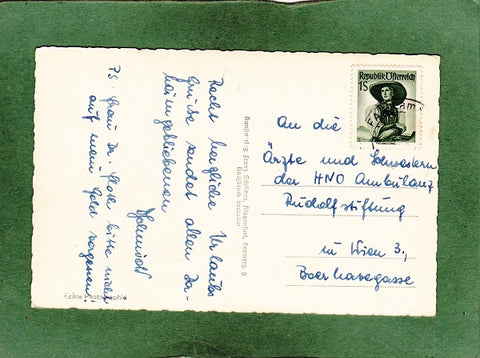 Recht herzliche Urlaubs
Grüße sendet allen Da-
heimgebliebenen
PS. Frau Dr. bitte nicht
auf mein Geld vergessen!
Echte Photographie
Republik Österreich
1S
An die
Ärzte und Schwestern
der HNO Ambulanz
Rudolfstiftung
in Wien 3.,
Boerhavegasse